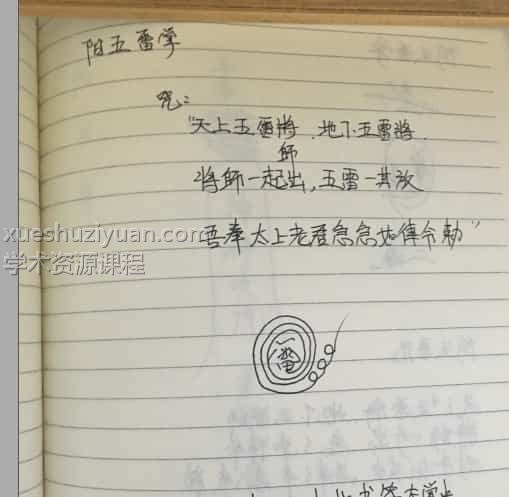 阳五雷掌
咒:
"天上五雷将.地下五雷将.
师
将师一起出,五雷一其放
xueshuziyuan.com
吾奉太上老君急急如律令勅"
学术资源课程
雷